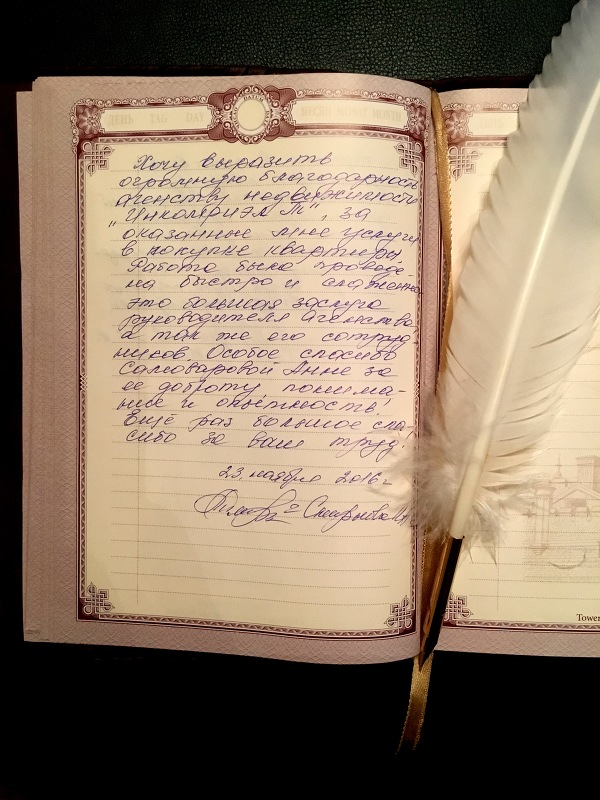 ДЕНЬ TAG DAY МЕСЯЦ MONAT MONTH
Хочу выразить
огромную благодарность
агенству недвижимости
"Инкомриэл М", за
оказанные мне услуги
в покупке квартиры.
Работа была проведе-
на быстро и слаженно
это большая заслуга
руководителя агенства,
а так же его сотруд
ников. Особое спасибо
Самоваровой Анне за
ее доброту понима-
ние и опытность!
Ещё раз большое спа-
сибо за ваш труд!
23, ноября 2016г
Смирнова
Tower